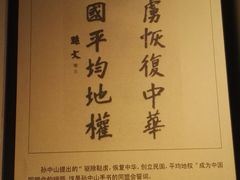 虜恢復中華
國平均地權
孫文
孙中山提出的“驱除鞑虏，恢复中华，创立民国，平均地权”成为中国
同盟会的纲领。这是孙中山手书的同盟会誓词。